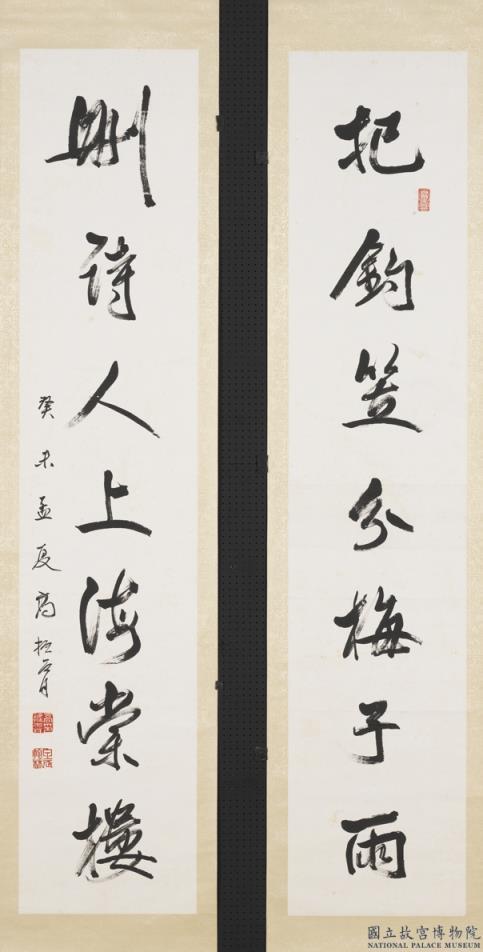 把釣笠分梅子雨
刪詩人上海棠樓
癸未孟夏高振霄
國立故宮博物院
NATIONAL PALACE MUSEUM